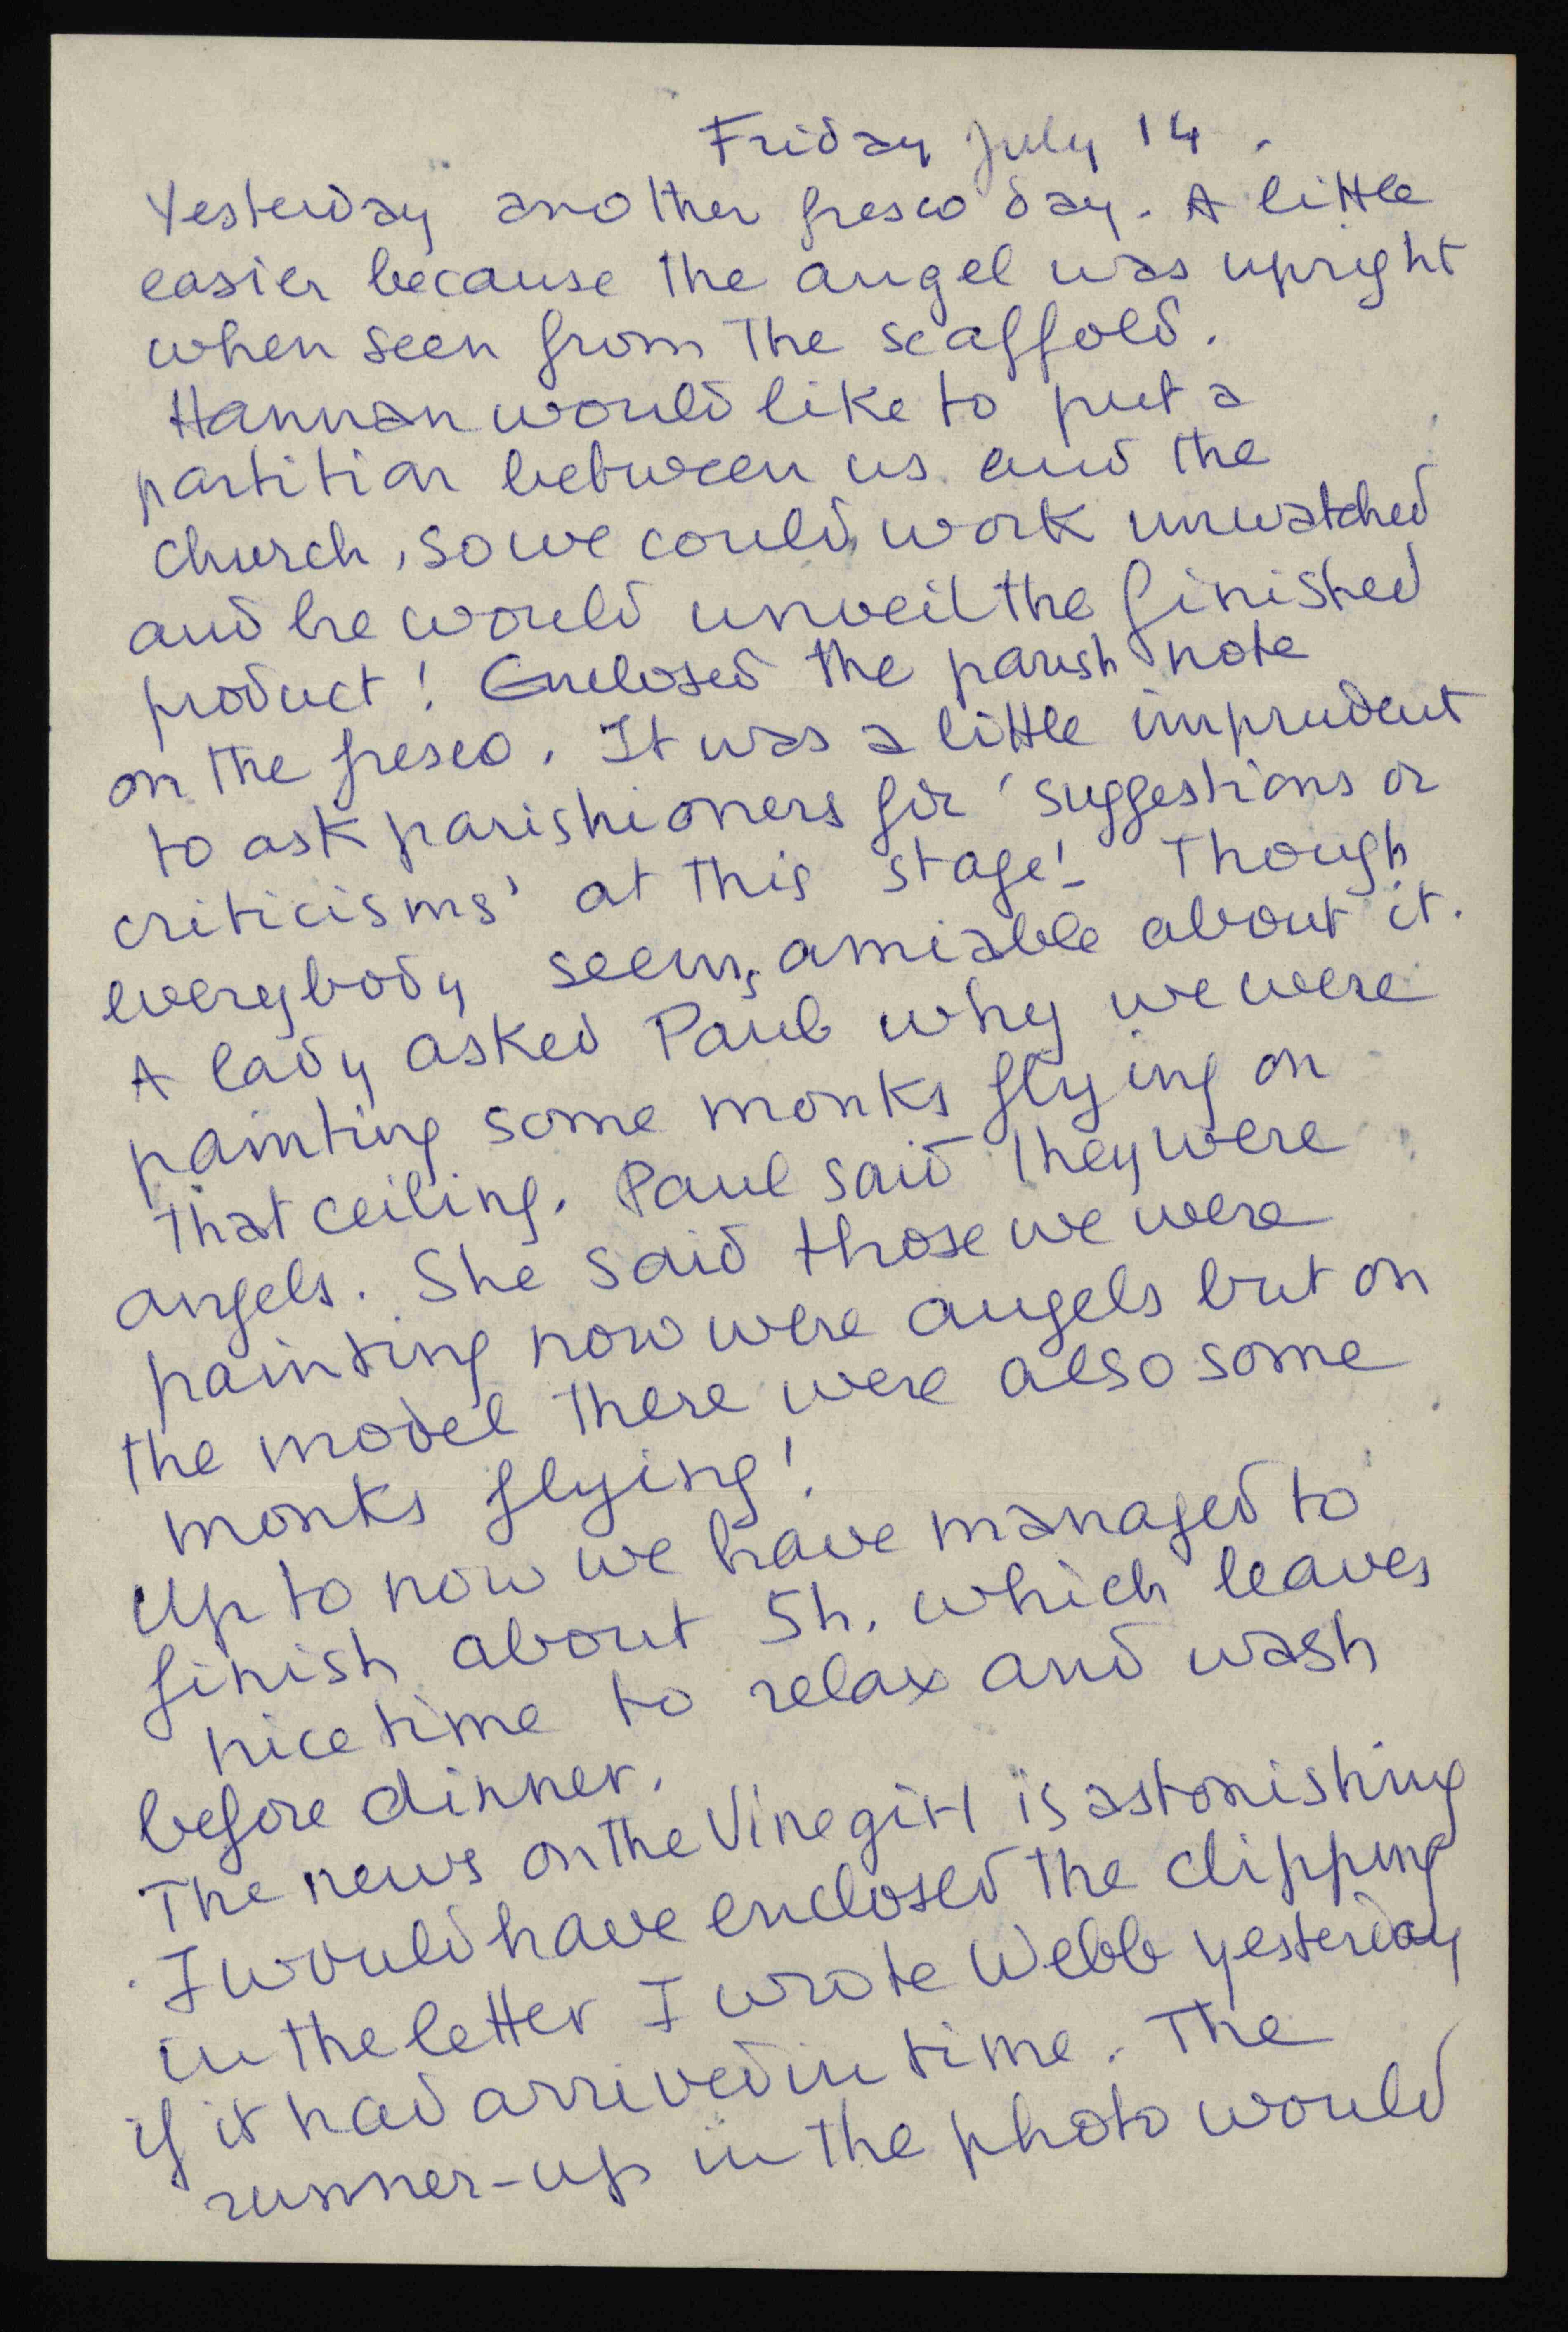 Friday July 14.
Yesterday another fresco day. A little
easier because the angel was upright
when seen from the scaffold.
Hannan would like to put a
partition between us and the
church, so we could work unwatched
and he would unveil the finished
product! Enclosed the parish note
on the fresco. It was a little imprudent
to ask parishioners for 'suggestions or
criticisms' at this stage! Though
everybody seems amiable about it.
A lady asked Paul why we were
painting some monks flying on
that ceiling. Paul said they were
angels. She said those we were
painting now were angels but on
the model there were also some
monks flying!
Up to now we have managed to
finish about 5h. which leaves
nice time to relax and wash
before dinner.
The news on the Vine girl is astonishing
I would have enclosed the clipping
in the letter I wrote Webb yesterday
if it had arrived in time. The
runner-up in the photo would